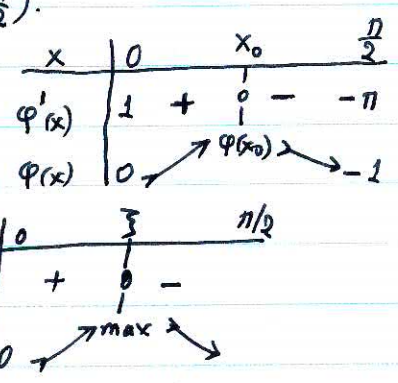 2).
x | 0 x₀ π/2
φ'(x) | 1 + 0 − −π
φ(x) | 0 ↗ φ(x₀) ↘ −1
0 ξ π/2
+ 0 −
0 ↗ max ↘